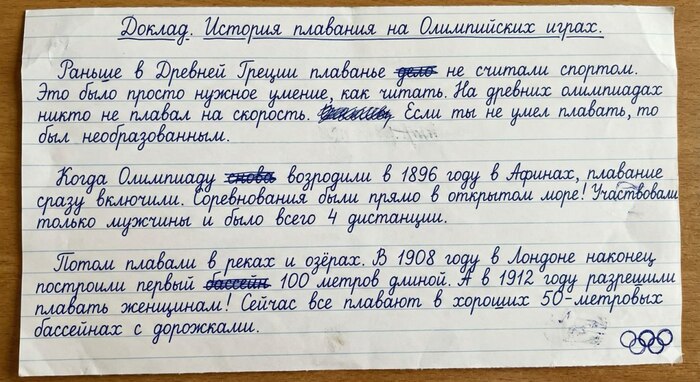 Доклад. История плавания на Олимпийских играх.
Раньше в Древней Греции плаванье дело не считали спортом.
Это было просто нужное умение, как читать. На древних олимпиадах
никто не плавал на скорость. Если ты не умел плавать, то
был необразованным.
Когда Олимпиаду снова возродили в 1896 году в Афинах, плавание
сразу включили. Соревнования были прямо в открытом море! Участвовали
только мужчины и было всего 4 дистанции.
Потом плавали в реках и озёрах. В 1908 году в Лондоне наконец
построили первый бассейн 100 метров длиной. А в 1912 году разрешили
плавать женщинам! Сейчас все плавают в хороших 50-метровых
бассейнах с дорожками.